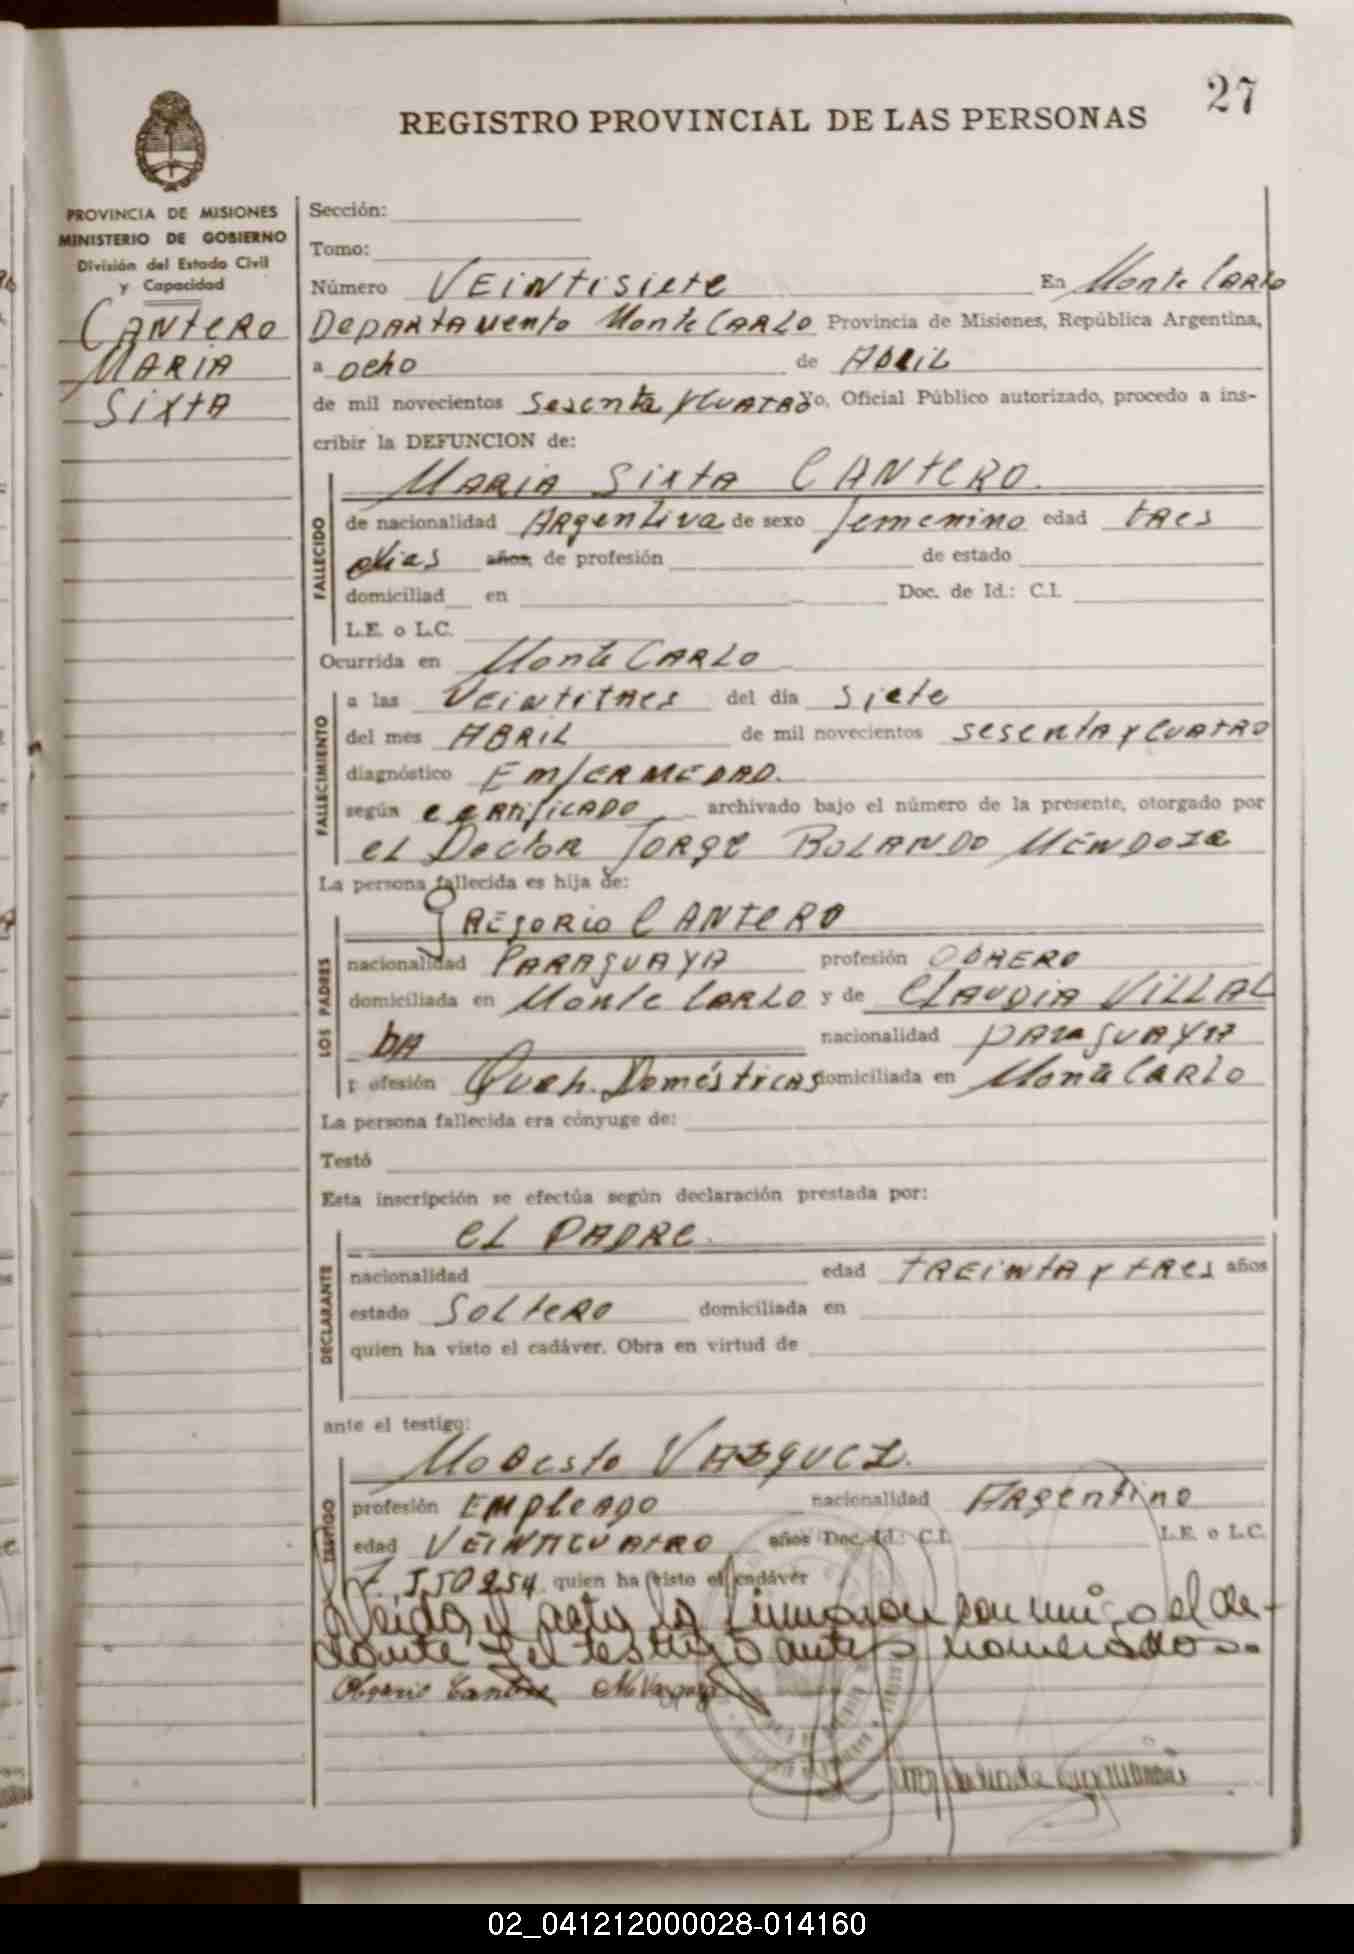 27
REGISTRO PROVINCIAL DE LAS PERSONAS
PROVINCIA DE MISIONES
MINISTERIO DE GOBIERNO
División del Estado Civil
y Capacidad
CANTERO
MARIA
SIXTA
Sección:
Tomo:
Número VEINTISIETE En Monte CARLO
DEPARTAMENTO Monte CARLO Provincia de Misiones, República Argentina,
a ocho de ABRIL
de mil novecientos Sesenta y CUATRO Yo, Oficial Público autorizado, procedo a ins-
cribir la DEFUNCION de:
MARIA SIXTA CANTERO.
FALLECIDO
de nacionalidad ARgentina de sexo femenino edad tres
dias años, de profesión de estado
domiciliad en Doc. de Id.: C.I.
L.E. o L.C.
Ocurrida en Monte CARLO
FALLECIMIENTO
a las VEINTITRES del día siete
del mes ABRIL de mil novecientos sesenta y CUATRO
diagnóstico ENFERMEDAD.
según CERTIFICADO archivado bajo el número de la presente, otorgado por
el Doctor JORGE ROLANDO MENDOZA
La persona fallecida es hija de:
GREGORIO CANTERO
LOS PADRES
nacionalidad PARAGUAYA profesión OBRERO
domiciliada en Monte CARLO y de CLAUDIA VILLAL
BA nacionalidad PARAGUAYA
profesión Queh. Domésticas domiciliada en Monte CARLO
La persona fallecida era cónyuge de:
Testó
Esta inscripción se efectúa según declaración prestada por:
EL PADRE.
DECLARANTE
nacionalidad edad TREINTA y TRES años
estado SOLTERO domiciliada en
quien ha visto el cadáver. Obra en virtud de
ante el testigo:
MODESTO VAZQUEZ.
TESTIGO
profesión EMPLEADO nacionalidad ARgentino
edad VEINTICUATRO años Doc. Id.: C.I. L.E. o L.C.
7.550254 quien ha visto el cadáver
Leida el acta la firmaron conmigo el de-
clarante y el testigo antes nomerados.-
Cantero M Vazquez
02_041212000028-014160